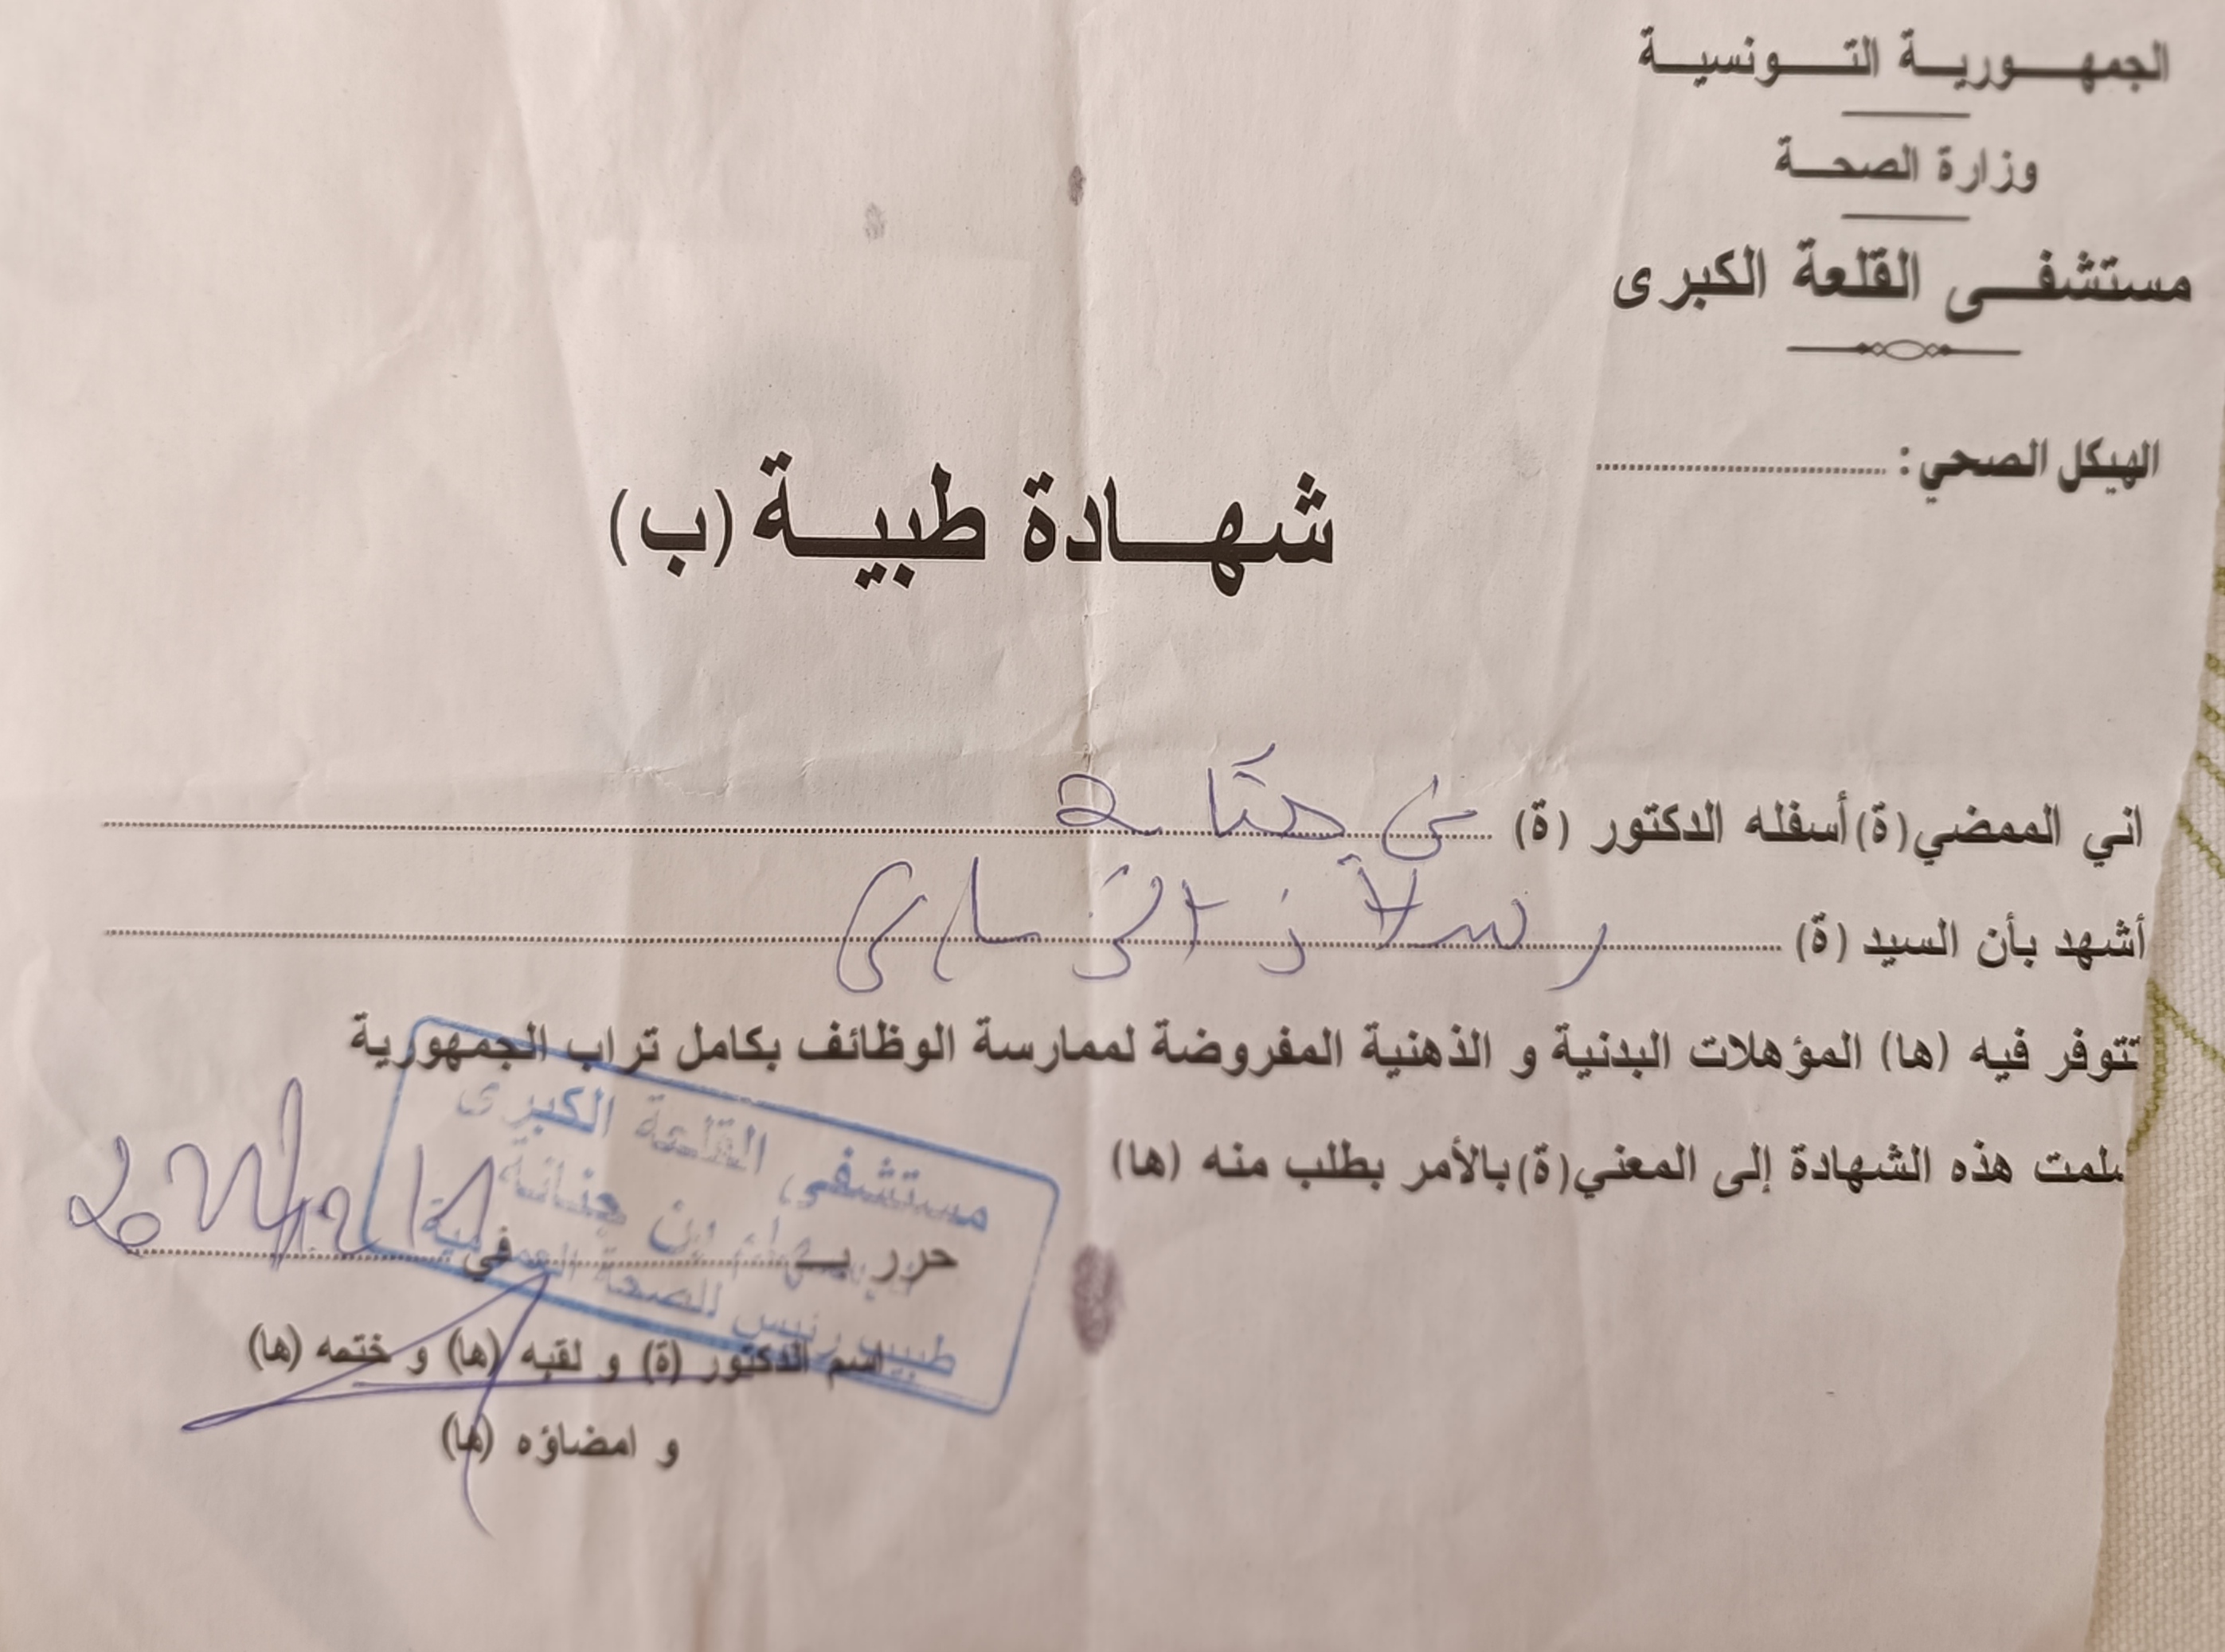 الجمهورية التونسية
وزارة الصحة
مستشفى القلعة الكبرى
الهيكل الصحي :
شهادة طبية (ب)
اني الممضي(ة) أسفله الدكتور (ة)
أشهد بأن السيد (ة)
تتوفر فيه (ها) المؤهلات البدنية و الذهنية المفروضة لممارسة الوظائف بكامل تراب الجمهورية
سلمت هذه الشهادة إلى المعني(ة) بالأمر بطلب منه (ها)
مستشفى القلعة الكبرى
بن جنانة
طبيب رئيس للصحة العمومية
حرر بـ في
اسم الدكتور (ة) و لقبه (ها) و ختمه (ها)
و امضاؤه (ها)